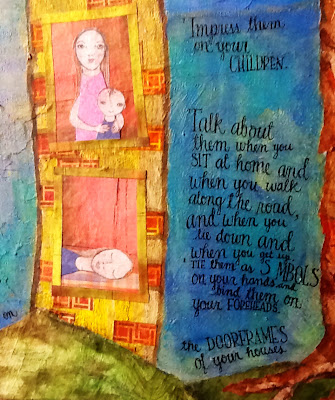 Impress them
on your
CHILDREN.
Talk about
them when you
SIT at home and
when you walk
along the road,
and when you
lie down and
when you get up.
TIE them as SYMBOLS
on your hands and
bind them on
your FOREHEADS.
the DOORFRAMES
of your houses.